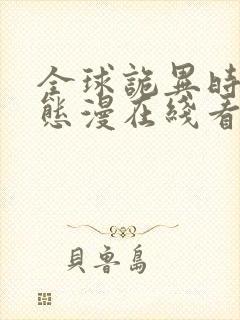 全球詭異時
態漫在綫看
貝魯島